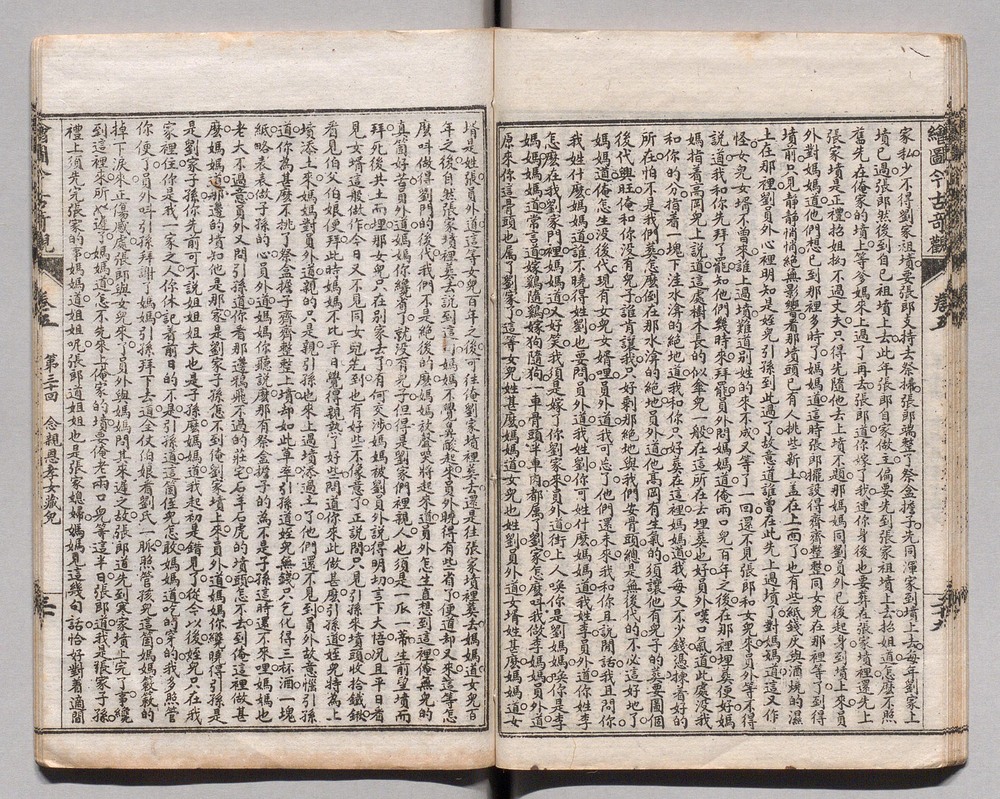 繪圖今古奇觀
卷五
家私少不得劉家祖墳要張郎支持去祭掃張郎端整了祭盒擔子先同渾家到墳上去每年劉家上
墳已過張郎然後到自己祖墳上去此年張郎自家做主偏要先到張家祖墳上去招姐道怎麼不照
舊先在俺家的墳上等爹媽來上過了再去張郎道你嫁了我連你身後也要葬在張家墳裡還先上
張家墳是正禮招姐拗丈夫不過只得先隨他去上墳不題那媽媽同劉員外已後起身到墳上來員
外對媽媽道他們想已到那裡多時了媽媽道這時張郎擺設得齊齊整整同女兒在那裡等了到得
墳前只見靜靜悄悄絕無影響看那墳頭已有人挑些新土蓋在上面了也有些紙錢灰與酒燒的濕
土在那裡劉員外心裡明知是姪兒引孫到此過了故意道誰曾在此先上過墳了對媽媽道這又作
怪女兒女婿不曾來誰上過墳難道別姓的來不成又等了一回還不見張郎和女兒來員外等不得
說道我和你先拜了罷知他們幾時來拜罷員外問媽媽道俺兩口兒百年之後在那裡埋葬便好媽
媽指着高岡兒上說道這處樹木長的似傘兒一般在這所在去埋葬也好員外嘆口氣道此處沒我
和你的分指着一塊下洼水渰的絕地道我和你只好葬在這裡媽媽道我每又不少錢憑揀着好的
所在怕不是我們葬怎麼倒在那水渰的絕地員外道他高岡有生氣的須讓他有兒子的葬要圖個
後代興旺俺和你沒有兒子誰肯讓我只好剩那絕地與我們安骨頭總是無後代的不必這好地了
媽媽道俺怎生沒後代現有女兒女婿哩員外道我可忘了他們還未來我和你且說閒話我且問你
我姓什麼媽媽道誰不曉得姓劉也要問員外道我姓劉你可姓什麼媽媽道我姓李員外道你是李
怎麼在我劉家門裡媽媽道又好笑我須是嫁了你劉家來員外道街上人喚你是劉媽媽喚你是李
媽媽媽媽道常言道嫁鷄隨鷄嫁狗隨狗一車骨頭半車肉都屬了劉家怎麼叫我做李媽媽員外道
原來你這骨頭也屬了劉家了這等女兒姓甚麼媽媽道女兒也姓劉員外道女婿姓甚麼媽媽道女
婿是姓張員外道這等女兒百年之後可往俺劉家墳裡葬去還是往張家墳裡葬去媽媽道女兒百
年之後自然張家墳裡葬去說到這媽媽不覺鼻酸起來員外曉得有些省了便道却又來這等怎
麼叫做得劉門的後代我們不是絕後的麼媽媽放聲哭將起來道員外怎生直想到這裡俺無兒的
真箇好苦員外道媽媽你纔省了就沒有兒子但得是劉家門裡親人也須是一瓜一蒂生前望墳而
拜死後共土而埋那女兒只在別家去了有何交涉媽媽被劉員外說得明切言下大悟況且平日看
見女婿這般做作今日又不見同女兒先到也有好些不像意了正說間只見引孫來墳頭收拾鐵鍬
看見伯父伯娘便拜此時媽媽不比平日覺得親熱了好些問道你來此做甚麼引孫道姪兒特為上
墳添土來媽媽對員外道親的只是親引孫也來上過墳添過土了他們還不見到員外故意惱引孫
道你為甚麼不挑了祭盒擔子齊齊整整上墳却如此草率引孫道姪兒無錢只乞化得三杯酒一塊
紙略表表做子孫的心員外道媽媽你聽說麼那有祭盒擔子的為不是子孫這時還不來哩媽媽也
老大不過意員外又問引孫道你看那邊鴉飛不過的莊宅石羊石虎的墳頭怎不去到俺這裡做甚
麼媽媽道那邊的墳知他是那家是劉家子孫怎不到俺劉家墳上來員外道媽媽你纔曉得引孫是
是劉家子孫你先前可不說姐姐姐夫也是子孫麼媽媽道我起初是錯見了從今以後姪兒只在我
家裡住你是我一家之人你休記着前日的不是引孫道這箇姪兒怎敢媽媽道吃的穿的我多照管
你便了員外叫引孫拜謝了媽媽引孫拜下去道全仗伯娘看劉氏一脈照管孩兒這箇媽媽簌簌的
掉下淚來正傷感處張郎與女兒來了員外與媽媽問其來遲之故張郎道先到寒家墳上完了事纔
到這裡來所以遲了媽媽道怎不先來上俺家的墳要俺老兩口兒等這半日張郎道我是張家子孫
禮上須先完張家的事媽媽道姐姐呢張郎道姐姐也是張家媳婦媽媽見這幾句話恰好對着適間
繪圖今古奇觀
卷五
第三十回　念親恩孝女藏兒